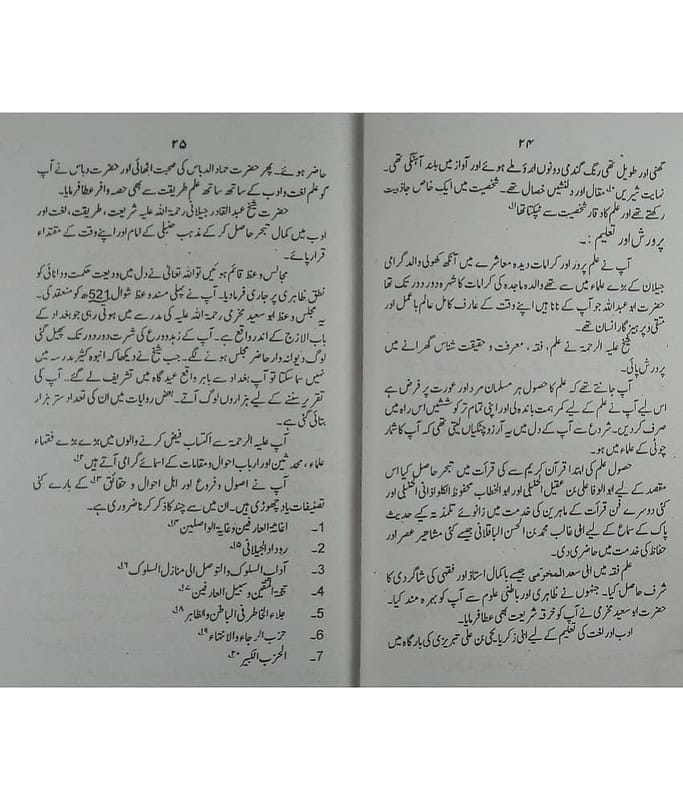 ۲۴
گھنی اور طویل تھی رنگ گندمی دونوں ابرو ملے ہوئے اور آواز میں بلند آہنگی تھی۔
نہایت شیریں مقال اور دلنشیں خصال تھے۔ شخصیت میں ایک خاص جاذبیت
رکھتے تھے اور علم کا وقار شخصیت سے ٹپکتا تھا
پرورش اور تعلیم :۔
آپ نے علم پرور اور کرامات دیدہ معاشرے میں آنکھ کھولی والد گرامی
جیلان کے بڑے علماء میں سے تھے والدہ ماجدہ کی کرامات کا شہرہ دور دور تک تھا
حضرت ابو عبداللہ جو آپ کے نانا ہیں اپنے وقت کے عارف کامل عالم باعمل اور
متقی و پرہیزگار انسان تھے۔
شیخ علیہ الرحمۃ نے علم، فقہ، معرفت و حقیقت شناس گھرانے میں
پرورش پائی۔
آپ جانتے تھے کہ علم کا حصول ہر مسلمان مرد اور عورت پر فرض ہے
اس لیے آپ نے علم کے لیے کمر ہمت باندھ لی اور اپنی تمام تر کوششیں اس راہ میں
صرف کردیں۔ شروع سے آپ کے دل میں یہ آرزو چٹکیاں لیتی تھی کہ آپ کا شمار
چوٹی کے علماء میں ہو۔
حصول علم کی ابتدا قرآن کریم سے کی قرأت میں تبحر حاصل کیا اس
مقصد کے لیے ابوالوفا علی بن عقیل الحنبلی اور ابوالخطاب محفوظ الکلوذانی الحنبلی اور
کئی دوسرے فن قرأت کے ماہرین کی خدمت میں زانوئے تلمذ تہ کیے حدیث
پاک کے سماع کے لیے ابی غالب محمد بن الحسن الباقلانی جیسے کئی مشاہیر عصر اور
حفاظ کی خدمت میں حاضری دی۔
علم فقہ میں ابی سعد المخرمی جیسے باکمال استاذ اور فقہی کی شاگردی کا
شرف حاصل کیا۔ جنہوں نے ظاہری اور باطنی علوم سے آپ کو بہرہ مند کیا۔
حضرت ابو سعید مخرمی نے آپ کو خرقہ شریعت بھی عطا فرمایا۔
ادب اور لغت کی تعلیم کے لیے ابی ذکریا یحیٰ بن علی تبریزی کی بارگاہ میں
۲۵
حاضر ہوئے۔ پھر حضرت حماد الدباس کی صحبت اٹھائی اور حضرت دباس نے آپ
کو علم لغت و ادب کے ساتھ ساتھ علم طریقت سے بھی حصہ وافر عطا فرمایا۔
حضرت شیخ عبدالقادر جیلانی رحمۃ اللہ علیہ شریعت، طریقت، لغت اور
ادب میں کمال تبحر حاصل کر کے مذہب حنبلی کے امام اور اپنے وقت کے مقتداء
قرار پائے۔
مجالس وعظ قائم ہوئیں تو اللہ تعالٰی نے دل میں ودیعت حکمت و دانائی کو
نطق ظاہری پر جاری فرمادیا۔ آپ نے پہلی مسند وعظ شوال 521ھ کو منعقد کی۔
یہ مجلس وعظ ابو سعید مخرمی رحمۃ اللہ علیہ کی مدرسے میں ہوتی رہی جو بغداد کے
باب الازج کے اندر واقع ہے۔ آپ کے زہد و ورع کی شہرت دور دور تک پھیل گئی
لوگ دیوانہ وار حاضر مجلس ہونے لگے۔ جب شیخ نے دیکھا کہ انبوہ کثیر مدرسہ میں
نہیں سما سکتا تو آپ بغداد سے باہر واقع عید گاہ میں تشریف لے گئے۔ آپ کی
تقریر سننے کے لیے ہزاروں لوگ آتے۔ بعض روایات میں ان کی تعداد ستر ہزار
بتائی گئی ہے۔
آپ علیہ الرحمۃ سے اکتساب فیض کرنے والوں میں بڑے بڑے فقہاء
علماء، محدثین اور ارباب احوال و مقامات کے اسمائے گرامی آتے ہیں ۱۲
آپ نے اصول و فروع اور اہل احوال و حقائق ۱۳ کے بارے کئی
تصنیفات یاد چھوڑی ہیں۔ ان میں سے چند کا ذکر کرنا ضروری ہے۔
1۔ اغاثۃ العارفین وغایۃ الواصلین ۱۴
2۔ رد داد الجیلانی ۱۵
3۔ آداب السلوک والتوصل الی منازل السلوک ۱۶
4۔ تحفۃ المتقین و سبیل العارفین ۱۷
5۔ جلاء الخاطر فی الباطن والظاہر ۱۸
6۔ حزب الرجاء والانتہاء ۱۹
7۔ الحزب الکبیر ۲۰